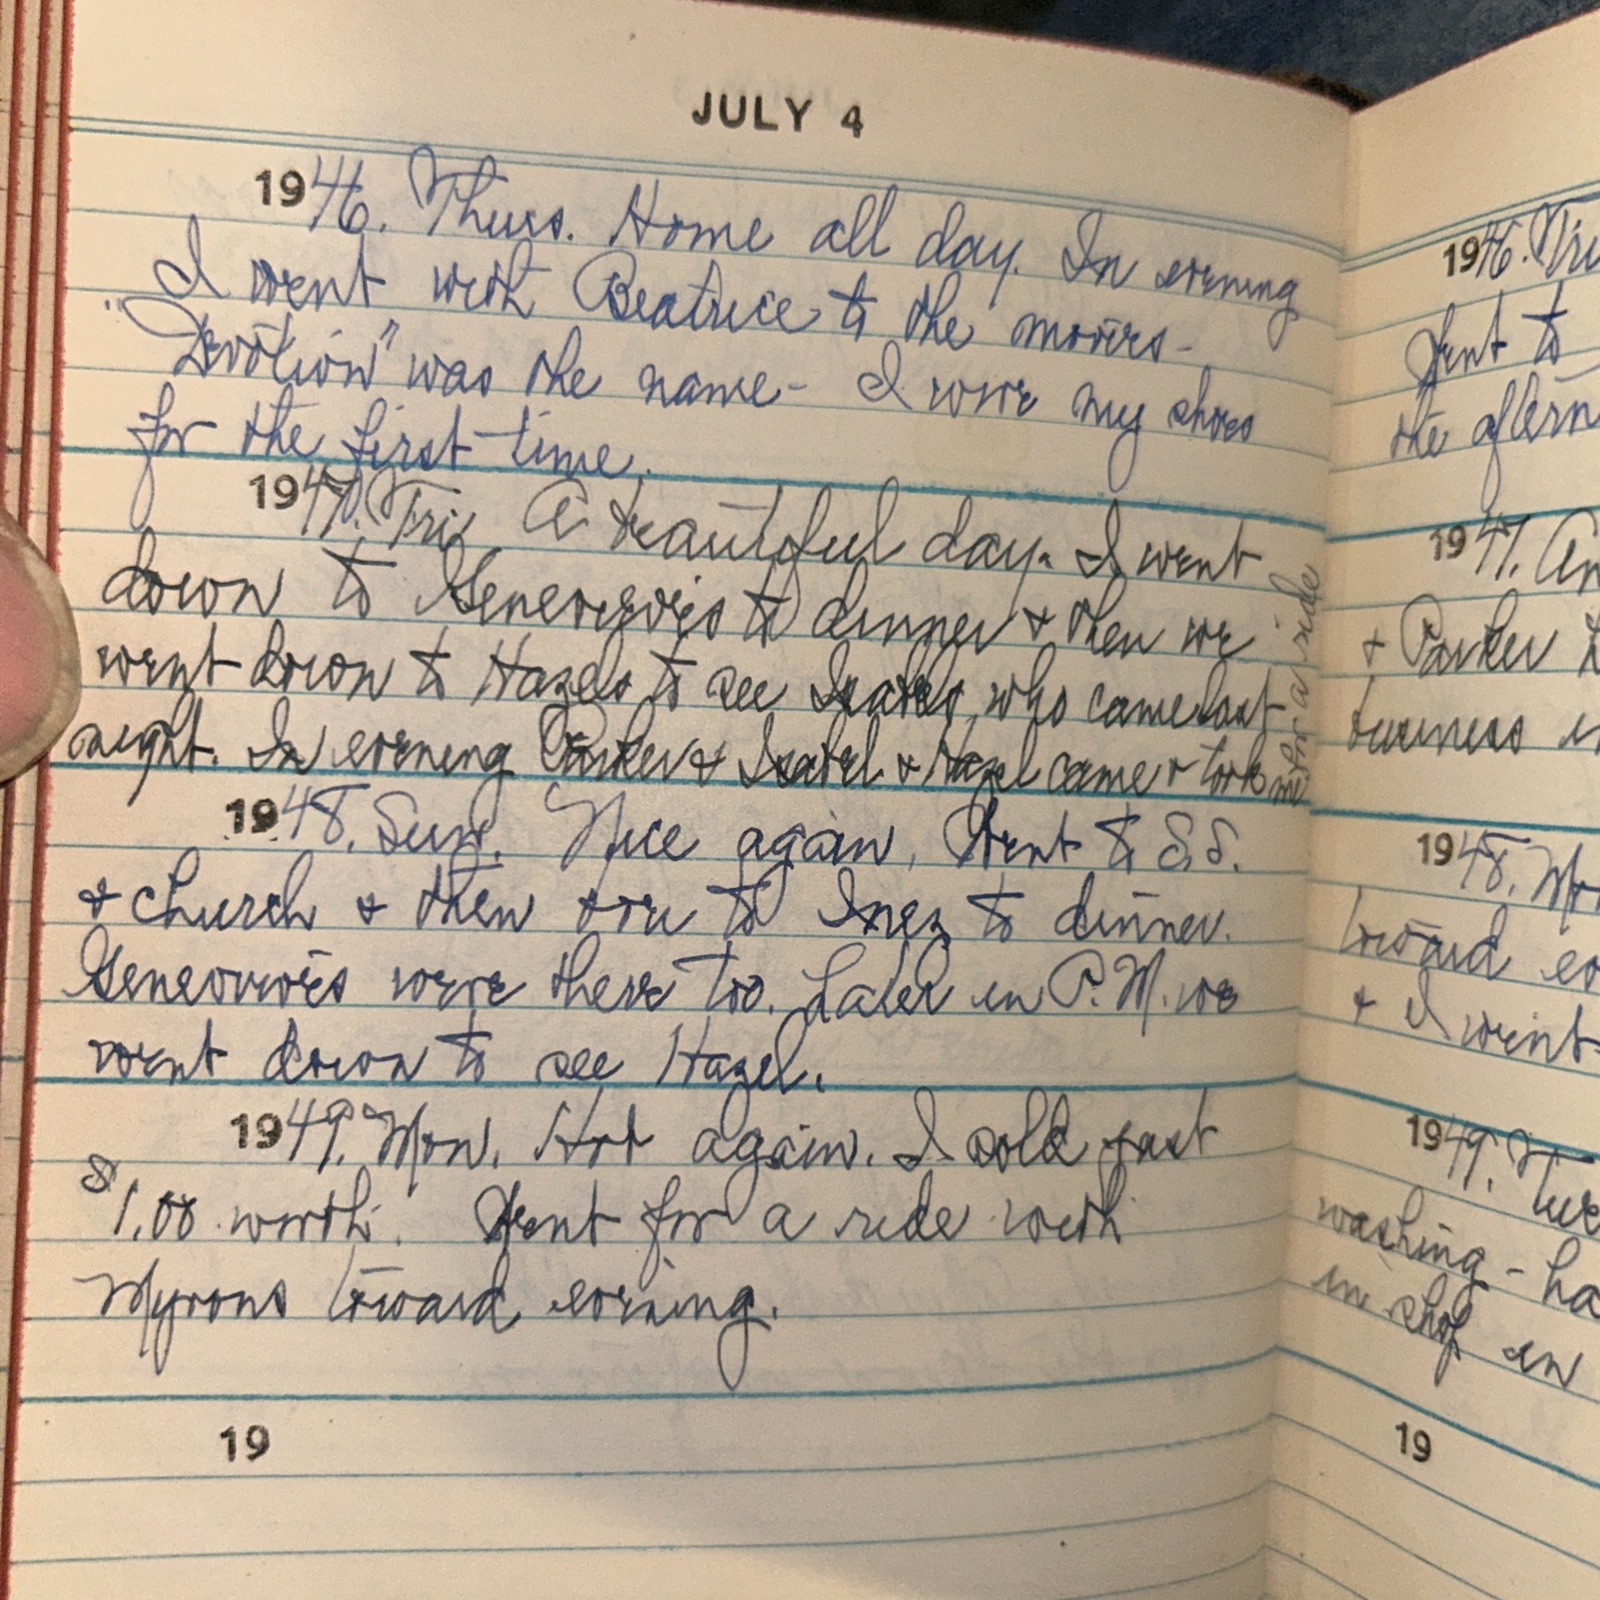 JULY 4
1946. Thurs. Home all day. In evening
I went with Beatrice to the movies -
"Devotion" was the name - I wore my shoes
for the first time.
1947. Fri. A beautiful day. I went
down to Genevieves to dinner & then we
went down to Hazels to see Isabel, who came last
night. In evening Parker & Isabel & Hazel came & took
me for a ride
1948. Sun. Nice again, Went to S.S.
& church & then over to Inez to dinner.
Genevieves were there too. Later in P.M. we
went down to see Hazel.
1949. Mon. Hot again. I sold just
$1.00 worth. Went for a ride with
Myrons toward evening.
19
1946. Fri
Went to
the aftern
1947.
& Parker
business
1948. Mo
toward ev
& I went
1949. Tue
washing - ha
in shop in
19